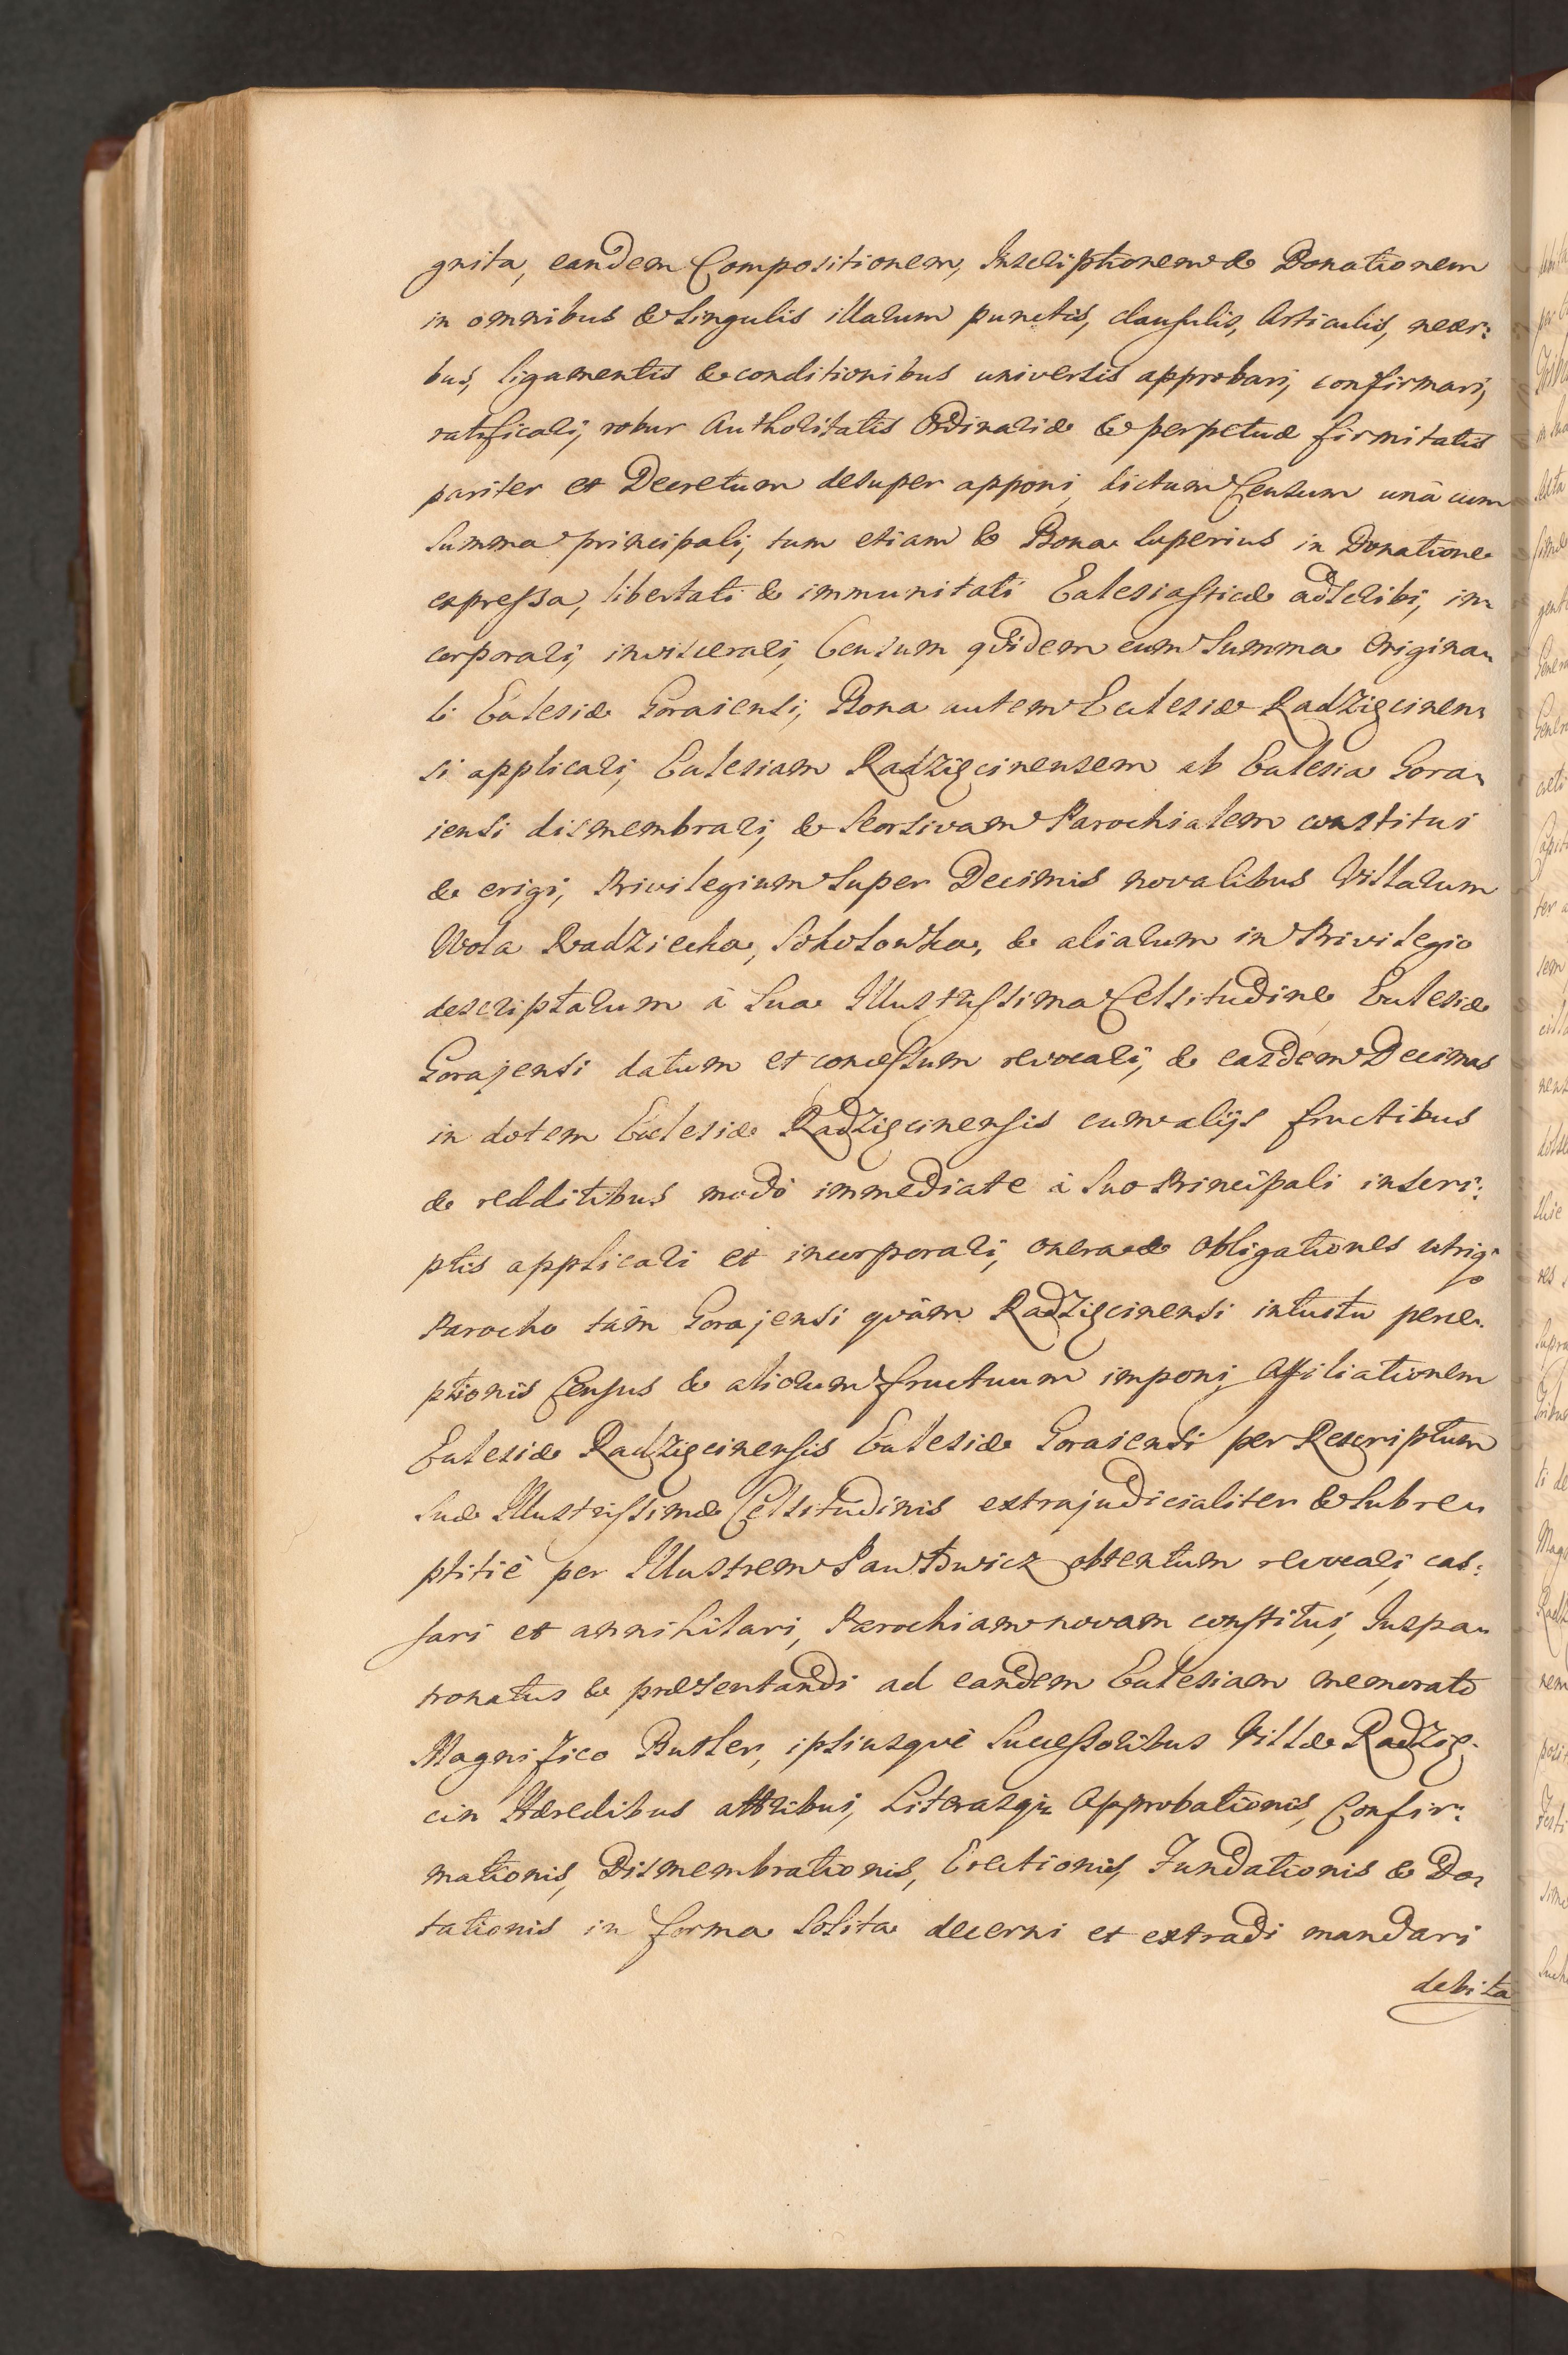 gnita, eandem Compositionem, Inscriptionem & Donationem
in omnibus & singulis illarum punctis, clausulis, Articulis, nexi:
bus, ligamentis & conditionibus universis approbari, confirmari,
ratificari, robur Authoritatis Ordinariæ & perpetuæ firmitatis
pariter et Decretum desuper apponi, dictum Censum unà cum
Summa principali, tum etiam & Bona superius in Donatione
expressa, libertati & immunitati Ecclesiasticæ adscribi, in-
corporari, inviscerari, Censum qvidem cum Summa Origina-
li Ecclesiæ Goraiensi, Bona autem Ecclesiæ Radzięcinen-
si applicari, Ecclesiam Radzięcinensem ab Ecclesia Gora-
iensi dismembrari, & Seorsivam Parochialem constitui
& erigi, Privilegium Super Decimis novalibus Villarum
Wola Radziecka, Sokołowka, & aliarum in Privilegio
descriptarum à Sua Illustrissima Celsitudine Ecclesiæ
Gorajensi datum et concessum revocari, & easdem Decimas
in dotem Ecclesiæ Radzięcinensis cum alijs fructibus
& redditibus modò immediate à Suo Principali inscri:
ptis applicari et incorporari, onera & Obligationes utriq;
Parocho tàm Gorajensi qvàm Radzięcinensi intuitu perce-
ptionis Census & aliorum fructuum imponi, Affiliationem
Ecclesiæ Radzięcinensis Ecclesiæ Goraiensi per Rescriptum
Suæ Illustrissimæ Celsitudinis extrajudicialiter & Subre-
ptitiè per Illustrem Pawłowicz obtentum revocari, cas:
sari et annihilari, Parochiam novam constitui, Juspa-
tronatus & præsentandi ad eandem Ecclesiam memorato
Magnifico Butler, ipsiusqve Successoribus Villæ Radzię-
cin Hæredibus attribui, Literasq; Approbationis, Confir:
mationis, Dismembrationis, Erectionis, Fundationis & Do-
tationis in forma Solita decerni et extradi mandari
debita